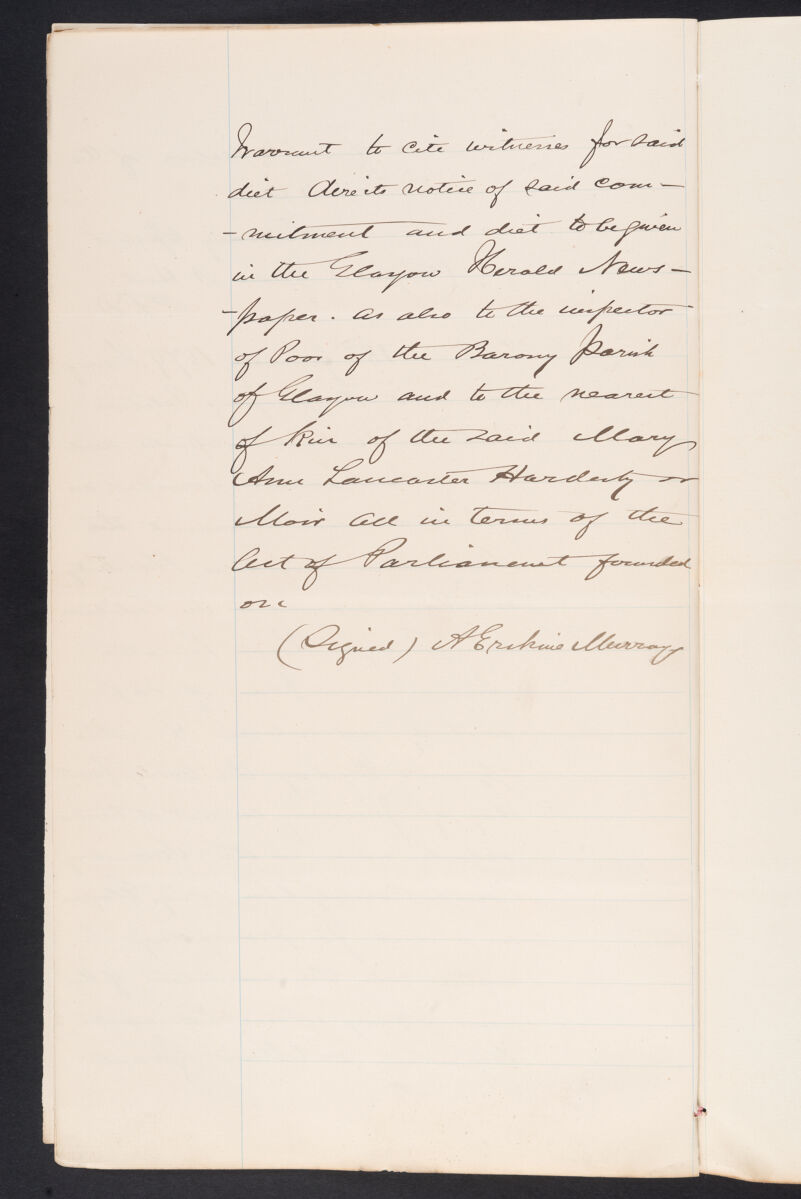 Warrant to cite witnesses for said
diet directs notice of said com-
-mitment and diet to be given
in the Glasgow Herald News-
-paper. as also to the inspector
of Poor of the Barony Parish
of Glasgow and to the nearest
of kin of the said Mary
Ann Lancaster Hardesty or
Moir all in terms of the
Act of Parliament founded
on
(Signed) A Erskine Murray